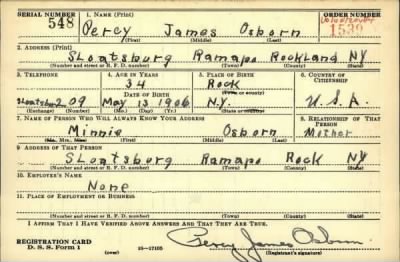 SERIAL NUMBER 1. NAME (Print) ORDER NUMBER
548 Percy James Osborn 1539
(First) (Middle) (Last)
2. ADDRESS (Print)
Sloatsburg Ramapo Rockland NY
(Number and street or R. F. D. number) (Town) (County) (State)
3. TELEPHONE 4. AGE IN YEARS 5. PLACE OF BIRTH 6. COUNTRY OF CITIZENSHIP
34 Rock
DATE OF BIRTH (Town or county)
Sloatsburg 209 May 13 1906 N.Y. U.S.A.
(Exchange) (Number) (Mo.) (Day) (Yr.) (State or country)
7. NAME OF PERSON WHO WILL ALWAYS KNOW YOUR ADDRESS 8. RELATIONSHIP OF THAT PERSON
Minnie Osborn Mother
(Mr., Mrs., Miss) (First) (Middle) (Last)
9. ADDRESS OF THAT PERSON
Sloatsburg Ramapo Rock NY
(Number and street or R. F. D. number) (Town) (County) (State)
10. EMPLOYER'S NAME
None
11. PLACE OF EMPLOYMENT OR BUSINESS
(Number and street or R. F. D. number) (Town) (County) (State)
I AFFIRM THAT I HAVE VERIFIED ABOVE ANSWERS AND THAT THEY ARE TRUE.
REGISTRATION CARD
D. S. S. Form 1 (over) 16—17105 Percy James Osborn
(Registrant's signature)